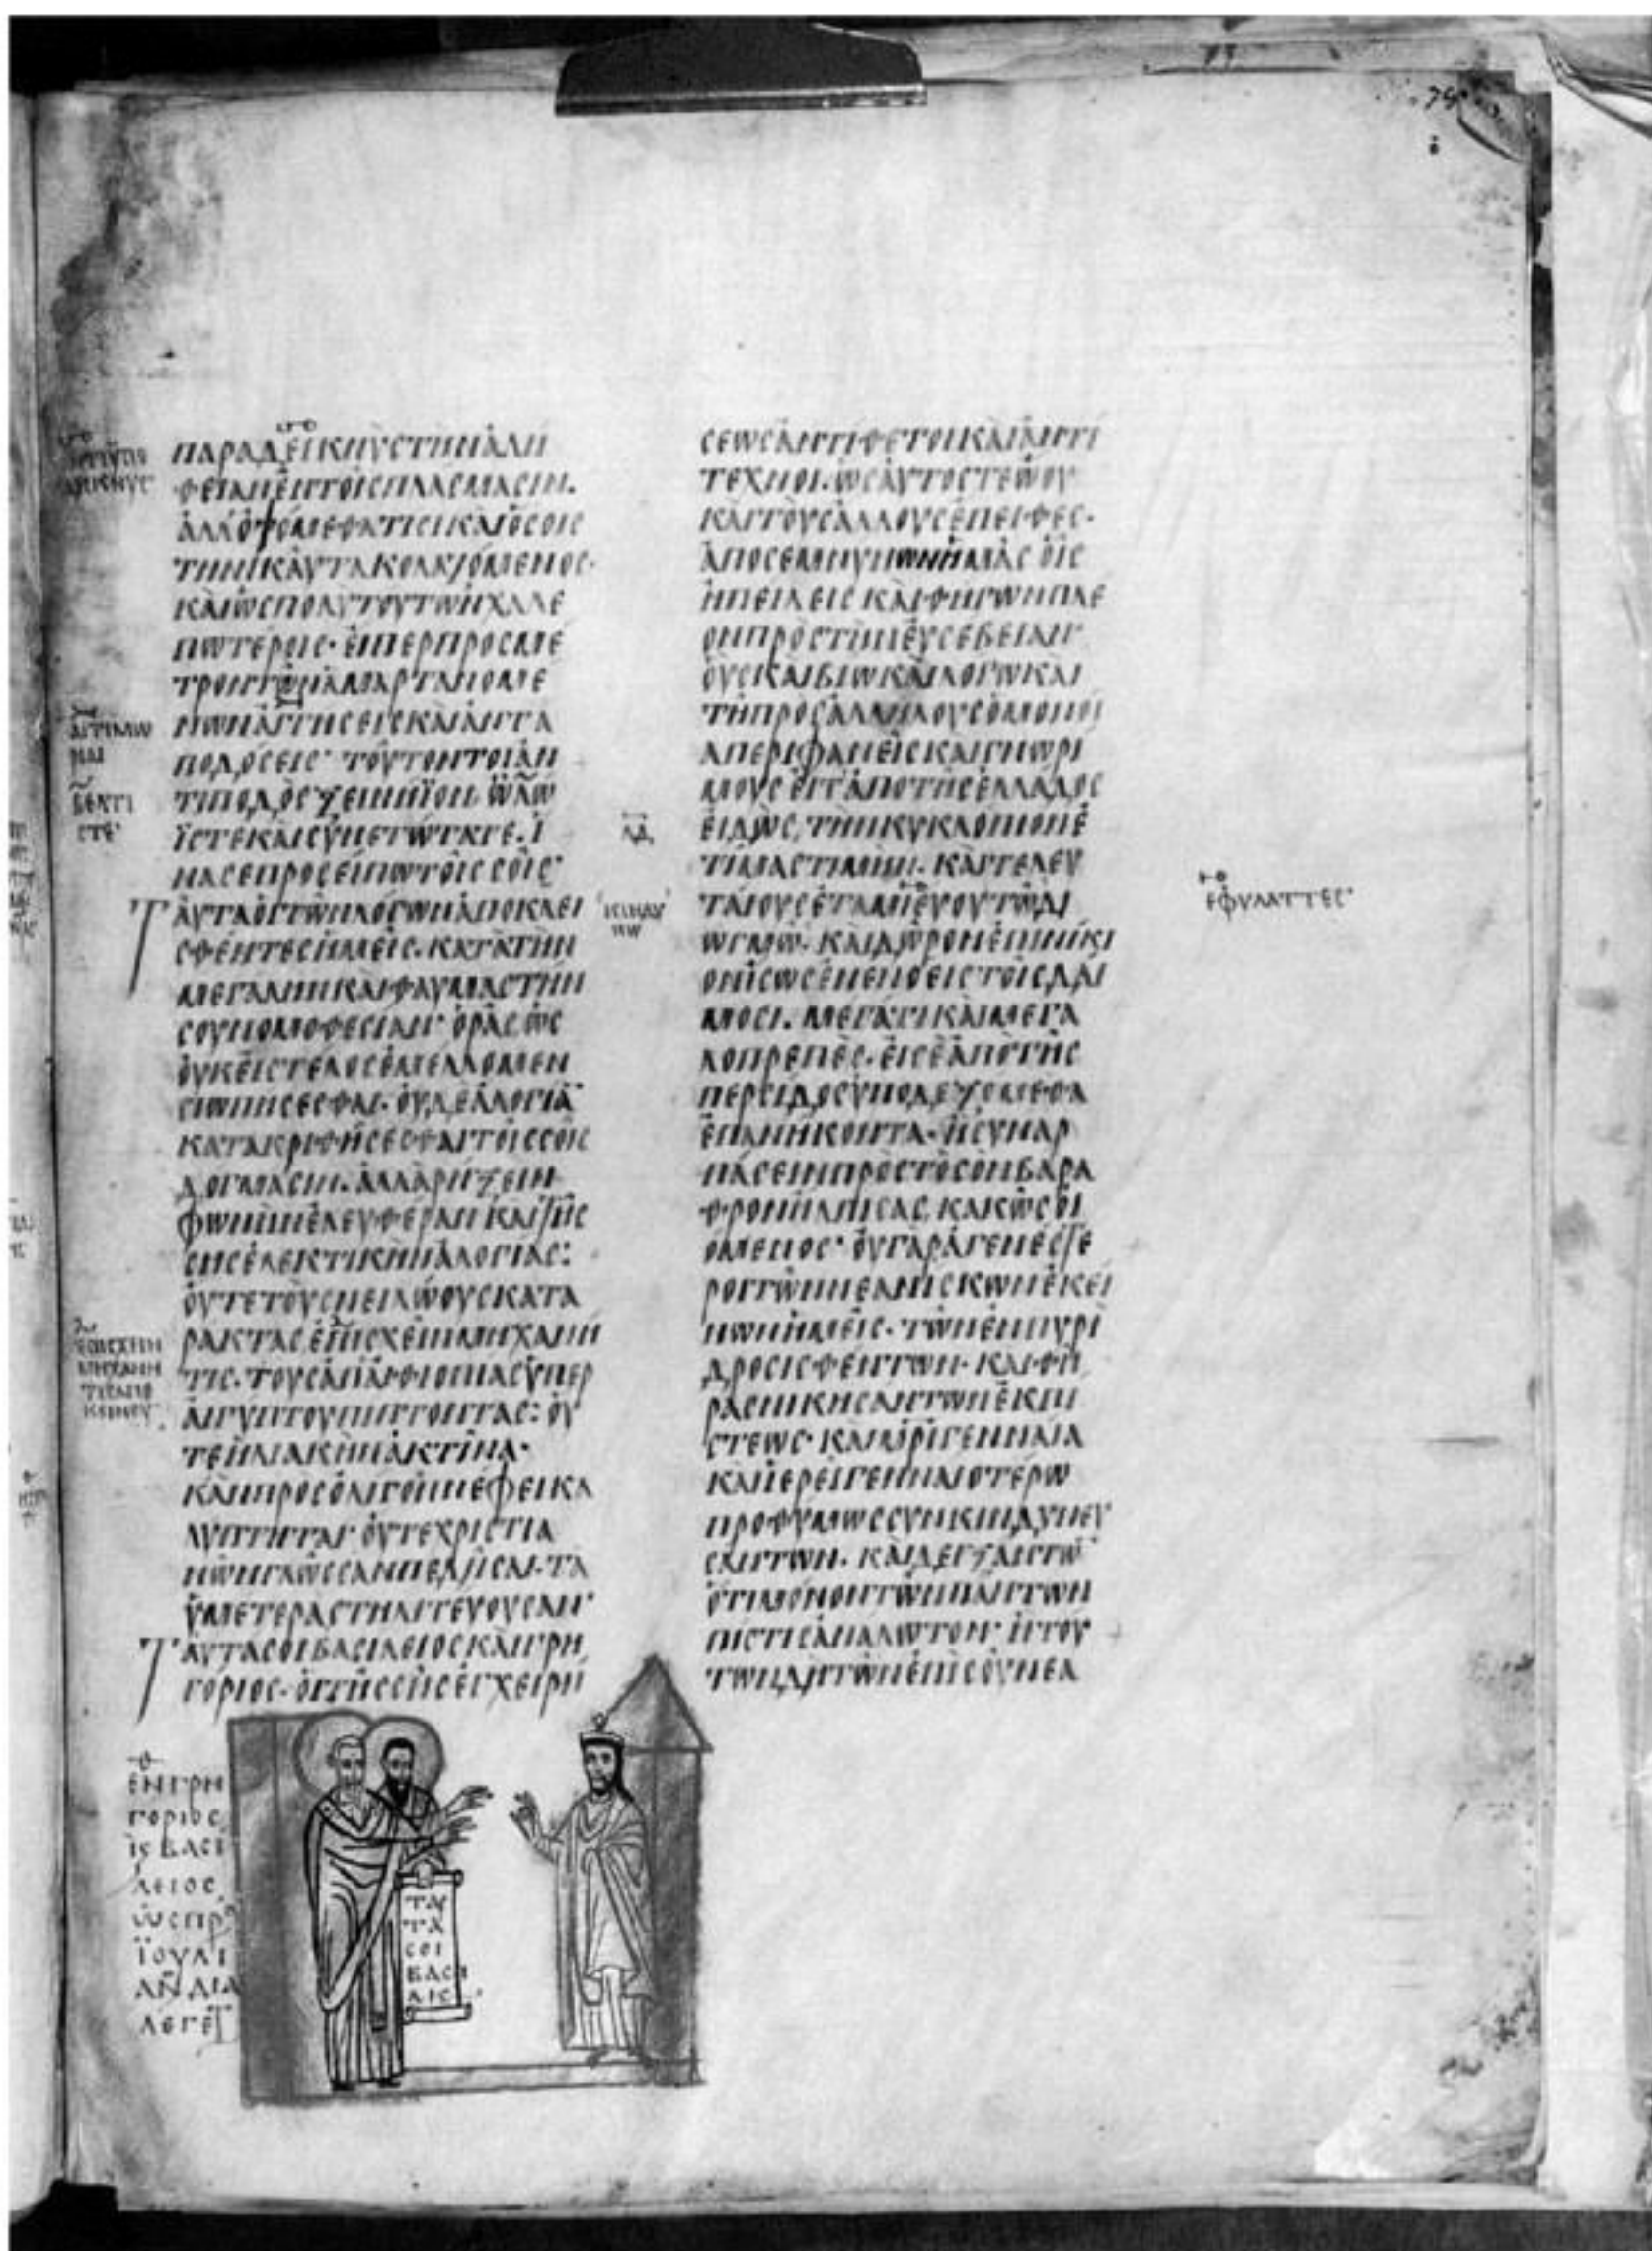 ΠΑΡΑΔΕΙΚΝΥϹΤΗΝΑΛΗ
ΘΕΙΑΝΕΝΤΟΙϹΠΛΑϹΜΑϹΙΝ.
ΑΛΛΟΨΟΜΕΘΑΤΙϹΙΚΑΙΟϹΟΙϹ
ΤΗΝΙΚΑΥΤΑΚΟΛΑΖΟΜΕΝΟϹ·
ΚΑΙΩϹΠΟΛΥΤΟΥΤΩΝΧΑΛΕ
ΠΩΤΕΡΟΙϹ· ΕΙΠΕΡΠΡΟϹΜΕ
ΤΡΟΝΤΩΝΑΜΑΡΤΑΝΟΜΕ
ΝΩΝΑΙΤΗϹΕΙϹΚΑΙΑΝΤΑ
ΠΟΔΟϹΕΙϹ· ΤΟΥΤΟΝΤΟΙΑΝ
ΤΙΠΟΔΟϹΞΕΙΝΗΪΟΝ
ΪϹΤΕΚΑΙϹΥΝΕΤΩΤΑΤΕ. Ϊ
ΝΑϹΕΠΡΟϹΕΙΠΩΤΟΙϹϹΟΙϹ·
ΤΑΥΤΑΟΙΤΩΝΛΟΓΩΝΑΠΟΚΛΕΙ
ϹΘΕΝΤΕϹΗΜΕΙϹ. ΚΑΤΑΤΗΝ
ΜΕΓΑΛΗΝΚΑΙΘΑΥΜΑϹΤΗΝ
ϹΟΥΝΟΜΟΘΕϹΙΑΝ· ΟΡΑϹΩϹ
ΟΥΚΕΙϹΤΕΛΟϹΕΜΕΛΛΟΜΕΝ
ϹΙΩΠΗϹΕϹΘΑΙ. ΟΥΔΕΑΛΟΓΙΑ
ΚΑΤΑΚΡΙΘΗϹΕϹΘΑΙΤΟΙϹϹΟΙϹ
ΔΟΓΜΑϹΙΝ. ΑΛΛΑΡΗΞΕΙΝ
ΦΩΝΗΝΕΛΕΥΘΕΡΑΝΚΑΙΤΗϹ
ϹΗϹΕΛΕΚΤΙΚΗΝΑΛΟΓΙΑϹ:
ΟΥΤΕΤΟΥϹΝΕΙΛΩΟΥϹΚΑΤΑ
ΡΑΚΤΑϹΕΠΙϹΧΕΙΝΜΗΧΑΝΗ
ΤΙϹ. ΤΟΥϹΑΠΑΙΘΙΟΠΙΑϹΥΠΕΡ
ΑΙΓΥΠΤΟΥΠΙΠΤΟΝΤΑϹ: ΟΥ
ΤΕΗΛΙΑΚΗΝΑΚΤΙΝΑ·
ΚΑΝΠΡΟϹΟΛΙΓΟΝΝΕΦΕΙΚΑ
ΛΥΠΤΗΤΑΙ· ΟΥΤΕΧΡΙϹΤΙΑ
ΝΩΝΓΛΩϹϹΑΝΠΕΔΗϹΑΙ. ΤΑ
ΥΜΕΤΕΡΑϹΤΗΛΙΤΕΥΟΥϹΑΝ·
ΤΑΥΤΑϹΟΙΒΑϹΙΛΕΙΟϹΚΑΙΓΡΗ
ΓΟΡΙΟϹ. ΟΙΤΗϹϹΗϹΕΓΧΕΙΡΗ
ϹΕΩϹΑΝΤΙΘΕΤΟΙΚΑΙΑΝΤΙ
ΤΕΧΝΟΙ. ΩϹΑΥΤΟϹΤΕΩΟΥ
ΚΑΙΤΟΥϹΑΛΛΟΥϹΕΠΕΙΘΕϹ·
ΑΠΟϹΕΜΝΥΝΩΝΗΜΑϹΟΙϹ
ΗΠΕΙΛΕΙϹΚΑΙΘΗΓΩΝΠΛΕ
ΟΝΠΡΟϹΤΗΝΕΥϹΕΒΕΙΑΝ·
ΟΥϹΚΑΙΒΙΩΚΑΙΛΟΓΩΚΑΙ
ΤΗΠΡΟϹΑΛΛΗΛΟΥϹΟΜΟΝΟΙ
ΑΠΕΡΙΦΑΝΕΙϹΚΑΙΓΝΩΡΙ
ΜΟΥϹΕΤΙΑΠΟΤΗϹΕΛΛΑΔΟϹ
ΕΙΔΩϹ, ΤΗΝΚΥΚΛΩΠΙΟΝΕ
ΤΙΜΑϹΤΙΜΗΝ. ΚΑΙΤΕΛΕΥ
ΤΑΙΟΥϹΕΤΑΜΙΕΥΟΥΤΩΔΙ
ΩΓΜΩ. ΚΑΙΔΩΡΟΝΕΠΙΝΙΚΙ
ΟΝΙϹΩϹΕΝΕΝΟΕΙϹΤΟΙϹΔΑΙ
ΜΟϹΙ. ΜΕΓΑΤΙΚΑΙΜΕΓΑ
ΛΟΠΡΕΠΕϹ. ΕΙϹΕΑΠΟΤΗϹ
ΠΕΡϹΙΔΟϹΥΠΟΔΕΞΟΜΕΘΑ
ΕΠΑΝΗΚΟΝΤΑ. ΗϹΥΝΑΡ
ΠΑϹΕΙΝΠΡΟϹΤΟϹΟΝΒΑΡΑ
ΘΡΟΝΗΛΠΙϹΑϹ, ΚΑΚΩϹΟΙ
ΟΜΕΝΟϹ· ΟΥΓΑΡΑΓΕΝΕϹΤΕ
ΡΟΙΤΩΝΝΕΑΝΙϹΚΩΝΕΚΕΙ
ΝΩΝΗΜΕΙϹ. ΤΩΝΕΝΠΥΡΙ
ΔΡΟϹΙϹΘΕΝΤΩΝ· ΚΑΙΘΗ
ΡΑϹΝΙΚΗϹΑΝΤΩΝΕΚΠΙ
ϹΤΕΩϹ· ΚΑΙΜΗΤΡΙΓΕΝΝΑΙΑ
ΚΑΙΙΕΡΕΙΓΕΝΝΑΙΟΤΕΡΩ
ΠΡΟΘΥΜΩϹϹΥΝΚΙΝΔΥΝΕΥ
ϹΑΝΤΩΝ. ΚΑΙΔΕΙΞΑΝΤΩ
ΟΤΙΜΟΝΟΝΤΩΝΠΑΝΤΩΝ
ΠΙϹΤΙϹΑΝΑΛΩΤΟΝ· ΗΤΟΥ
ΤΩΝΔΗΤΩΝΕΠΙϹΟΥΝΕΑ
ΒΕΛΤΙ
ϹΤΕ·
ΛΔ
ΕΦΥΛΑΤΤΕϹ·
ΓΡΗ
ΓΟΡΙΟϹ
ΒΑϹΙ
ΛΕΙΟϹ
ΩϹΠΡ
ΪΟΥΛΙ
ΑΝ̅ΔΙΑ
ΛΕΓΕΤ
ΤΑΥ
ΤΑ
ϹΟΙ
ΒΑϹΙ
ΛΙϹ